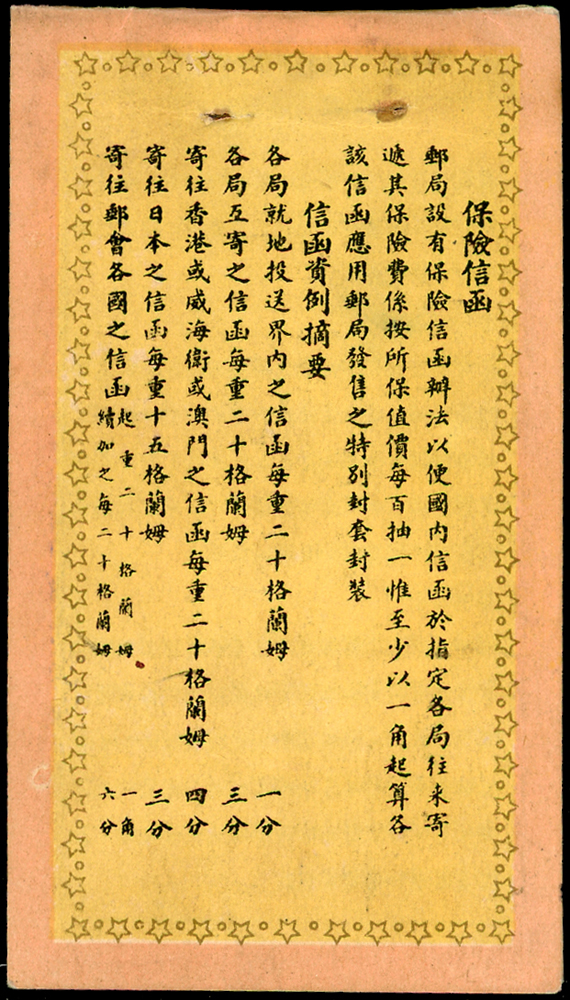 保險信函
郵局設有保險信函辦法以便國內信函於指定各局往來寄
遞其保險費係按所保值價每百抽一惟至少以一角起算各
該信函應用郵局發售之特別封套封裝
信函資例摘要
各局就地投送界內之信函每重二十格蘭姆 一分
各局互寄之信函每重二十格蘭姆 三分
寄往香港或威海衛或澳門之信函每重二十格蘭姆 四分
寄往日本之信函每重十五格蘭姆 三分
寄往郵會各國之信函 起重二十格蘭姆 一角
續加之每二十格蘭姆 六分